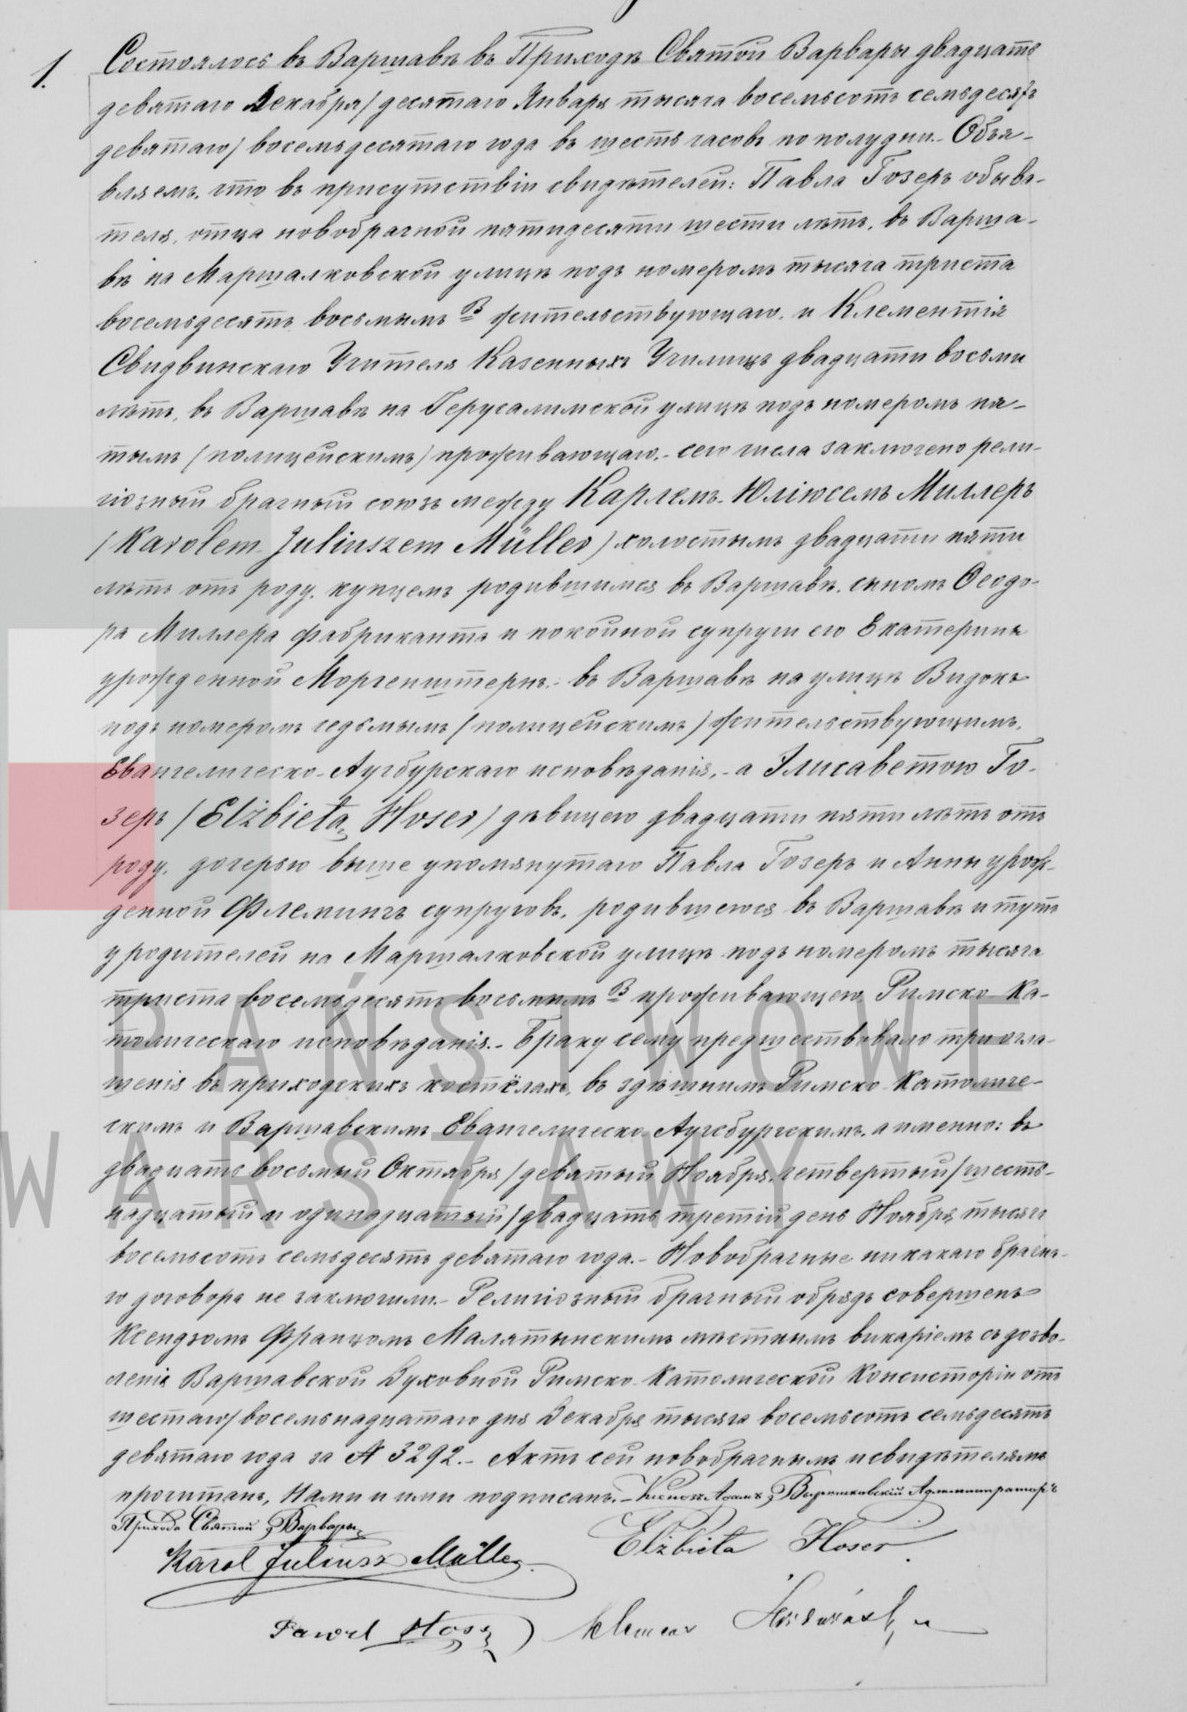 1.
Состоялось въ Варшавѣ въ Приходѣ Святой Варвары двадцать
девятаго Декабря/десятаго Января тысяча восемьсотъ семьдесятъ
девятаго/восемьдесятаго года въ шесть часовъ по полудни.- Объя-
вляемъ, что въ присутствіи свидѣтелей: Павла Гозеръ обыва-
теля, отца новобрачной пятидесяти шести лѣтъ, въ Варша-
вѣ на Маршалковской улицѣ подъ номеромъ тысяча триста
восемьдесятъ восьмымъ В жительствующаго, и Клементія
Свидвинскаго Учителя Казенныхъ Училищъ двадцати восьми
лѣтъ, въ Варшавѣ на Іерусалимской улицѣ подъ номеромъ пя-
тымъ (полицейскимъ) проживающаго,- сего числа заключено рели-
гіозный брачный союзъ между Карлемъ-Юліюсемъ Миллеръ
/Karolem Juliuszem Müller/ холостымъ двадцати пяти
лѣтъ отъ роду, купцемъ родившимся въ Варшавѣ, сыномъ Ѳеодо-
ра Миллера фабриканта и покойной супруги его Екатерины
урожденной Моргенштернъ,- въ Варшавѣ на улицѣ Видокъ
подъ номеромъ седьмымъ (полицейскимъ) жительствующимъ,
Евангелическо-Аугсбурскаго исповѣданія,- а Элисаветою Го-
зеръ /Elżbieta Hoser/ дѣвицею двадцати пяти лѣтъ отъ
роду, дочерью выше упомянутаго Павла Гозеръ и Анны урож-
денной Флемингъ супруговъ, родившеюся въ Варшавѣ и тутъ
у родителей на Маршалковской улицѣ подъ номеромъ тысяча
триста восемьдесятъ восьмымъ В проживающею Римско-Ка-
толическаго исповѣданія.- Браку сему предшествовало три огла-
шенія въ приходскихъ костёлахъ, въ здѣшнимъ Римско-Католиче-
скимъ и Варшавскимъ Евангелическо-Аугсбургскимъ, а именно: въ
двадцать восьмый Октября/девятый Ноября, четвертый/шест-
надцатый и одинадцатый/двадцать третій день Ноября тысяча
восемьсотъ семьдесятъ девятаго года.- Новобрачные никакаго брачна-
го договора не заключили.- Религіозный брачный обрядъ совершенъ
Ксендзомъ Францомъ Малятынскимъ мѣстнымъ викаріемъ съ дозво-
ленія Варшавской Духовной Римско-Католической Консисторіи отъ
шестаго/восемьнадцатаго дня Декабря тысяча восемьсотъ семьдесятъ
девятаго года за N 3292.- Актъ сей новобрачнымъ и свидѣтелямъ
прочитанъ, Нами и ими подписанъ.- Ксендзъ Администраторъ
Прихода Святой Варвары
Karol Juliusz Müller Elżbieta Hoser.
Paweł Hoser Klemens
PAŃSTWOWE
WARSZAWY